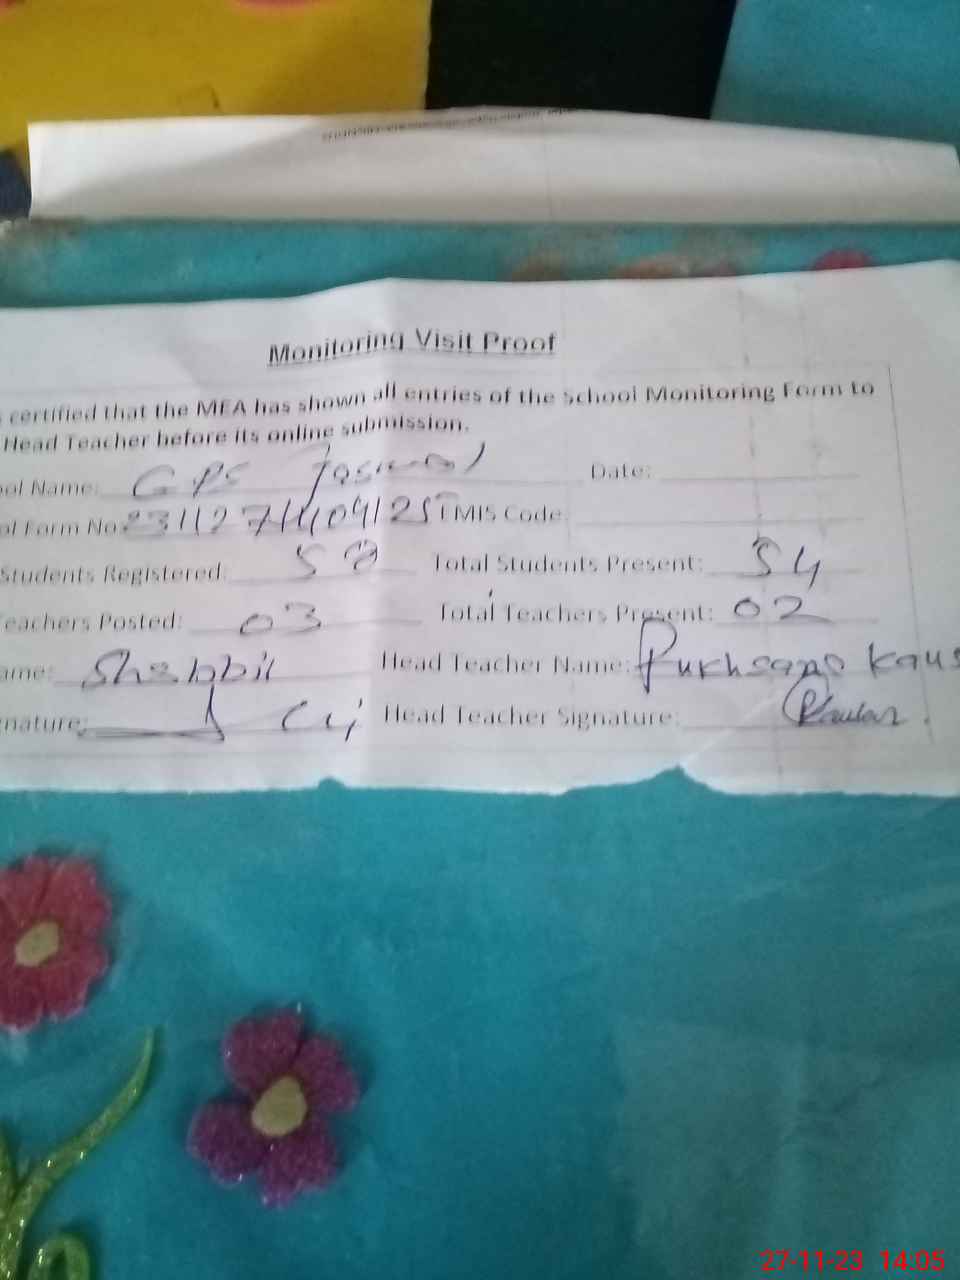 Monitoring Visit Proof
certified that the MEA has shown all entries of the School Monitoring Form to
Head Teacher before its online submission.
ool Name: GPS Jaswal Date:
ol Form No EMIS Code
Students Registered: 58 Total Students Present: 54
eachers Posted: 03 Total Teachers Present: 02
ame: Shabbir Head Teacher Name: Rukhsana Kaus
nature: Head Teacher Signature: Kausar
27-11-23 14:05